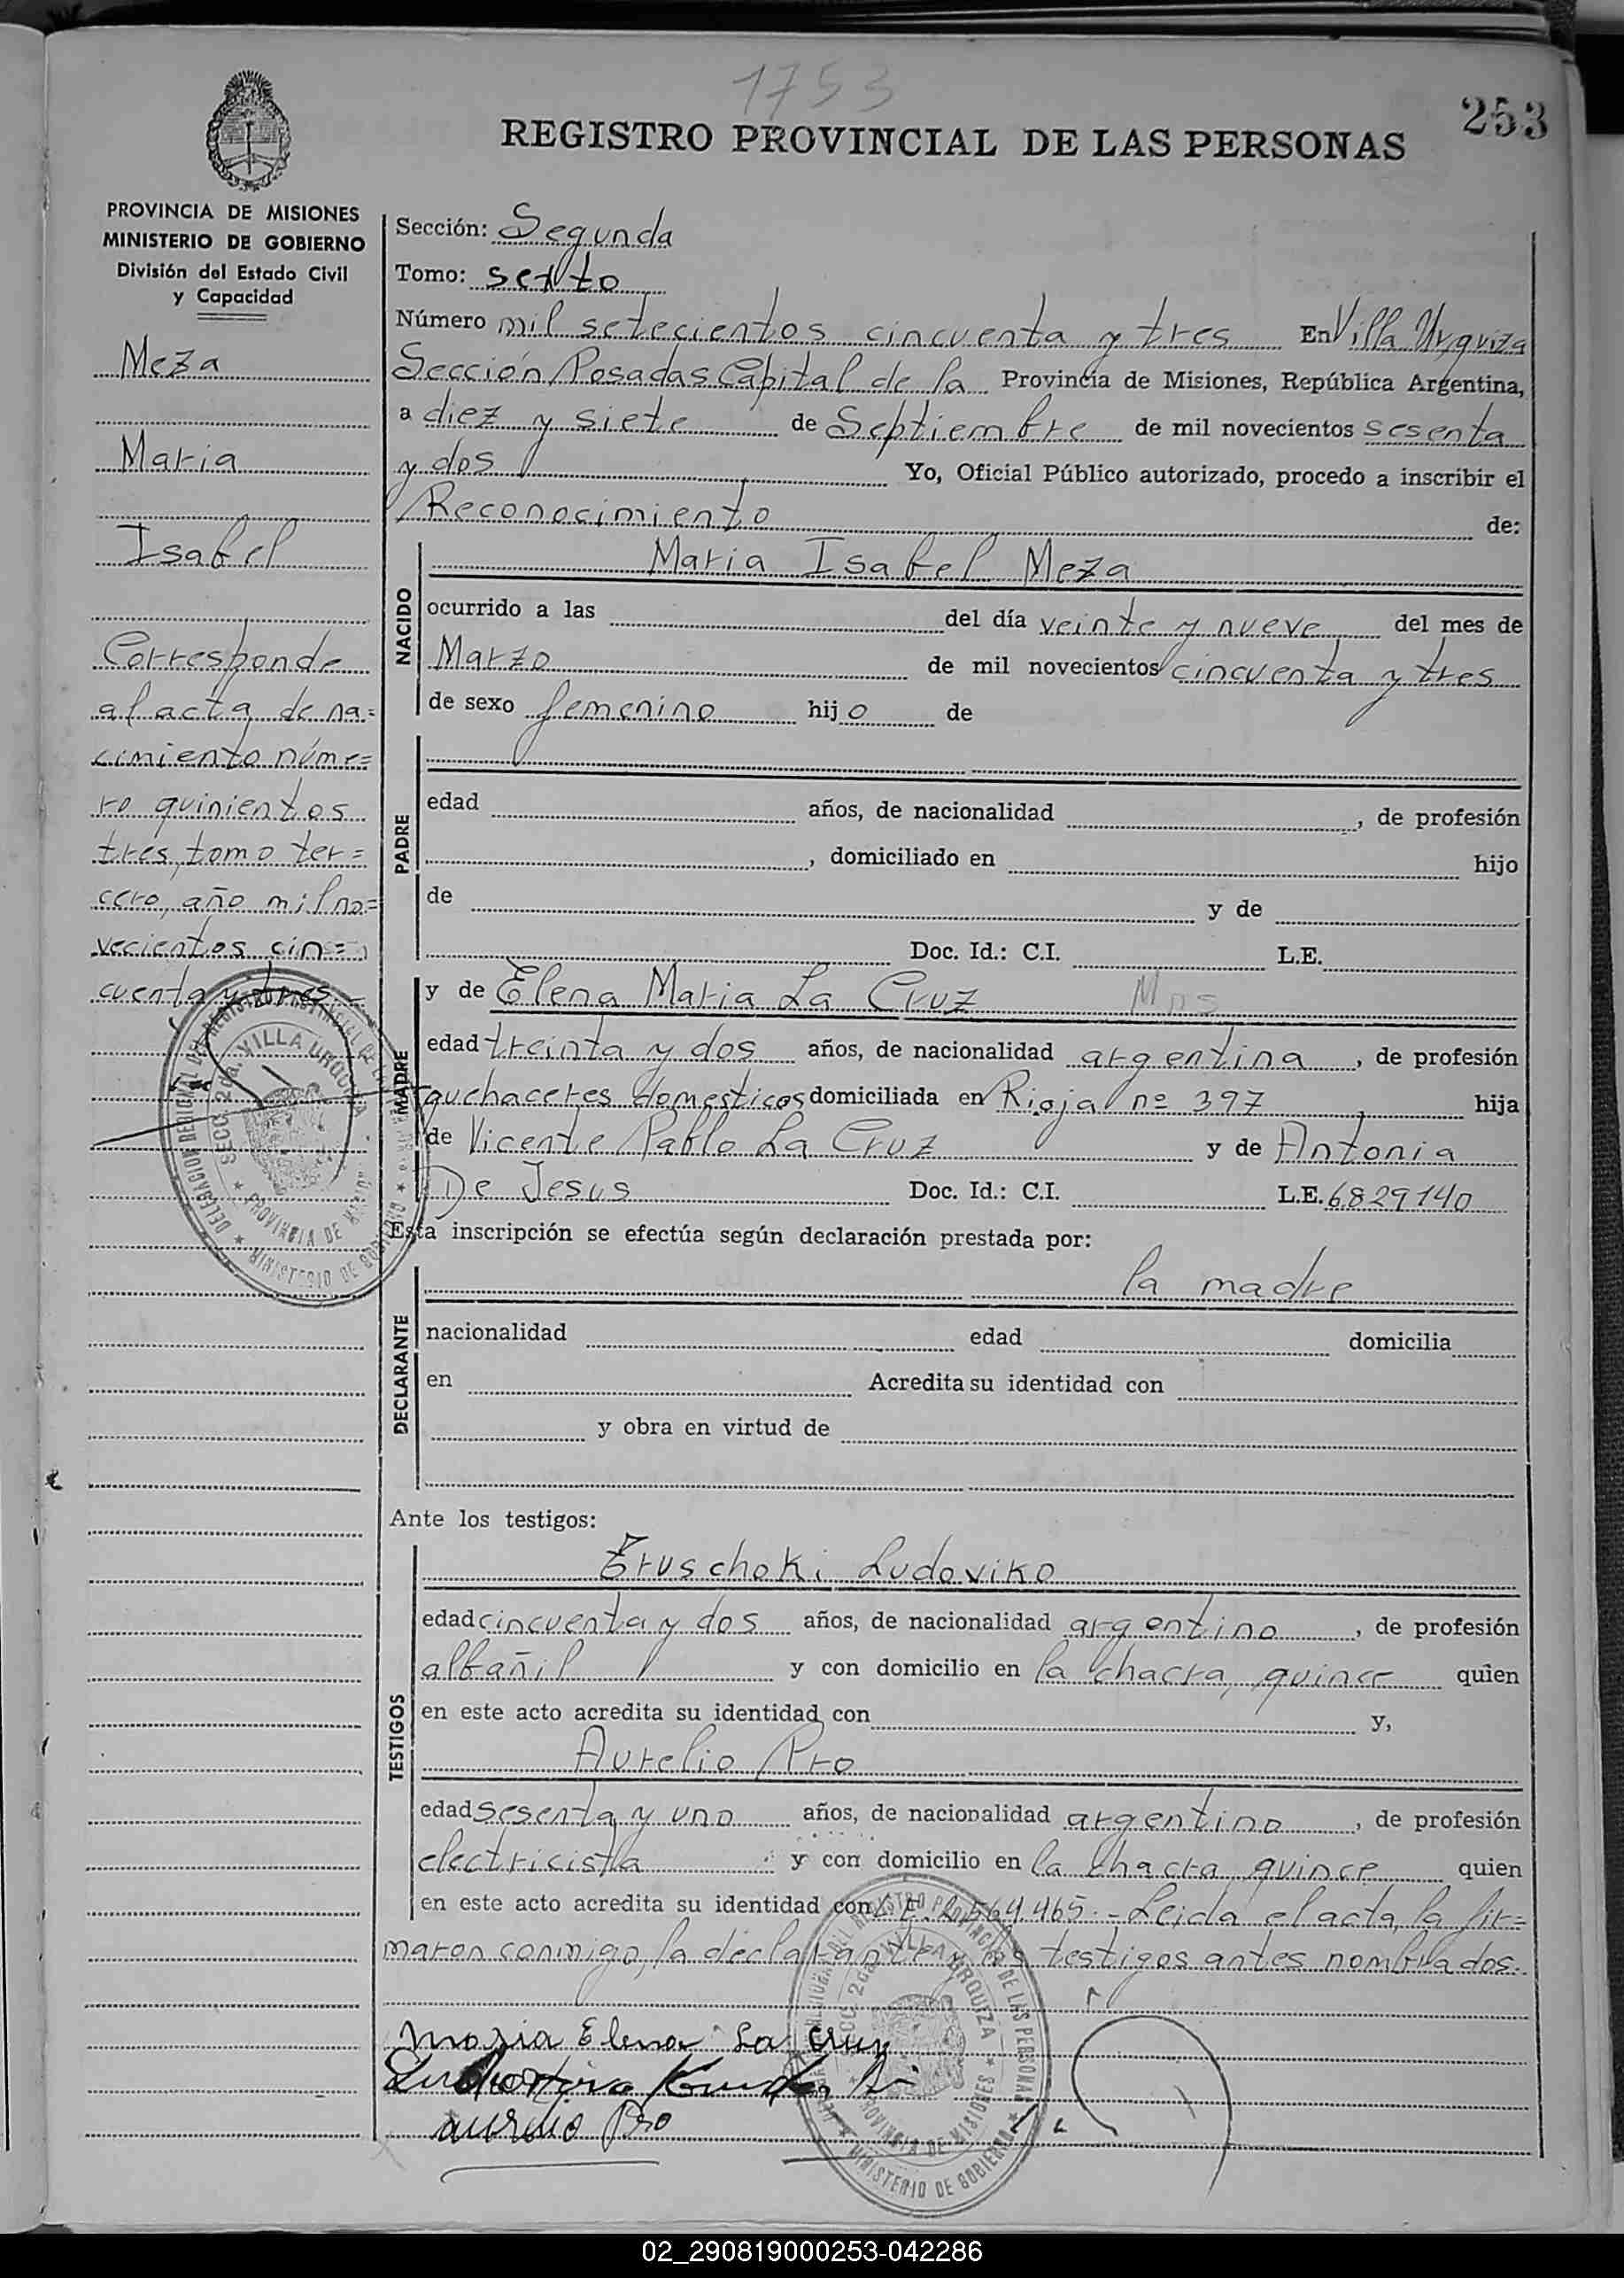 1753
253
REGISTRO PROVINCIAL DE LAS PERSONAS
PROVINCIA DE MISIONES
MINISTERIO DE GOBIERNO
División del Estado Civil
y Capacidad
Meza
Maria
Isabel
Corresponde
al acta de na=
cimiento núme=
ro quinientos
tres, tomo ter=
cero, año mil no=
vecientos cin=
cuenta y tres
Sección: Segunda
Tomo: sexto
Número mil setecientos cincuenta y tres En Villa Urquiza
Sección Posadas Capital de la Provincia de Misiones, República Argentina,
a diez y siete de Septiembre de mil novecientos sesenta
y dos Yo, Oficial Público autorizado, procedo a inscribir el
Reconocimiento de:
NACIDO
Maria Isabel Meza
ocurrido a las del día veinte y nueve del mes de
Marzo de mil novecientos cincuenta y tres
de sexo femenino hijo de
PADRE
edad años, de nacionalidad , de profesión
, domiciliado en hijo
de y de
Doc. Id.: C.I. L.E.
MADRE
y de Elena Maria La Cruz
edad treinta y dos años, de nacionalidad argentina, de profesión
quehaceres domesticos domiciliada en Rioja nº 397 hija
de Vicente Pablo La Cruz y de Antonia
De Jesus Doc. Id.: C.I. L.E. 6829140
Esta inscripción se efectúa según declaración prestada por:
DECLARANTE
la madre
nacionalidad edad domicilia
en Acredita su identidad con
y obra en virtud de
Ante los testigos:
TESTIGOS
Eruschoki Ludoviko
edad cincuenta y dos años, de nacionalidad argentino, de profesión
albañil y con domicilio en la chacra, quince quien
en este acto acredita su identidad con y,
Aurelio Pro
edad sesenta y uno años, de nacionalidad argentino, de profesión
electricista y con domicilio en la chacra quince quien
en este acto acredita su identidad con L.E. 2.564.465.- Leida el acta, la fir=
maron conmigo, la declarante y los testigos antes nombrados.-
Maria Elena La Cruz
Aurelio Pro
DELEGACION REGIONAL DEL REGISTRO PROVINCIAL DE LAS PERSONAS
SECC. 2da. VILLA URQUIZA
PROVINCIA DE MISIONES
MINISTERIO DE GOBIERNO
REGISTRO PROVINCIAL DE LAS PERSONAS
SECC. 2da. VILLA URQUIZA
PROVINCIA DE MISIONES
MINISTERIO DE GOBIERNO
02_290819000253-042286